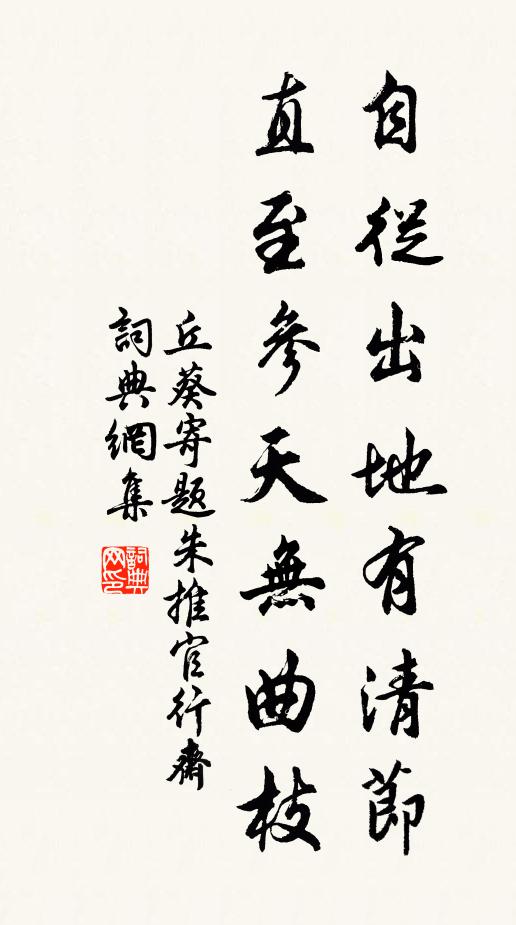 自從出地有清節
直至參天無曲枝
丘葵寄題朱推官行齋
詞典網集
詞典网印